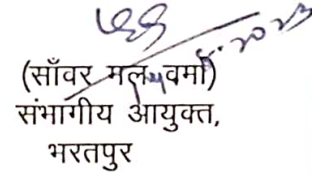 (साँवर मल वर्मा)
संभागीय आयुक्त,
भरतपुर